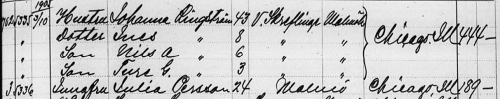 1905
7625335 3/10 Hustru Johanna Ringström 43 V. Skreflinge Malmöh. Chicago, Ill 444 —
" " " Dotter Ines 8 " "
" " " Son Nils A 6 " "
" " " Son Ture G. 3 " "
5336 " Jungfru Julia Persson 24 Malmö Chicago, Ill 189 —